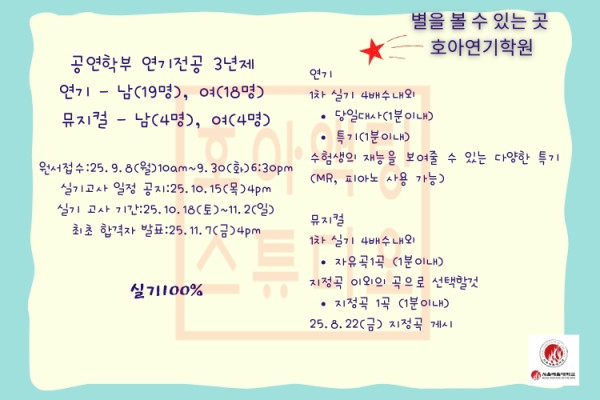 별을 볼 수 있는 곳
호아연기학원
공연학부 연기전공 3년제
연기 - 남(19명), 여(18명)
뮤지컬 - 남(4명), 여(4명)
원서접수:25.9.8(월)10am~9.30(화)6:30pm
실기고사 일정 공지:25.10.15(목)4pm
실기 고사 기간:25.10.18(토)~11.2(일)
최초 합격자 발표:25.11.7(금)4pm
실기100%
연기
1차 실기 4배수내외
• 당일대사(1분이내)
• 특기(1분이내)
수험생의 재능을 보여줄 수 있는 다양한 특기
(MR, 피아노 사용 가능)
뮤지컬
1차 실기 4배수내외
• 자유곡1곡 (1분이내)
지정곡 이외의 곡으로 선택할것
• 지정곡 1곡 (1분이내)
25.8.22(금) 지정곡 게시
호아액팅
스튜디오
서울예술대학교